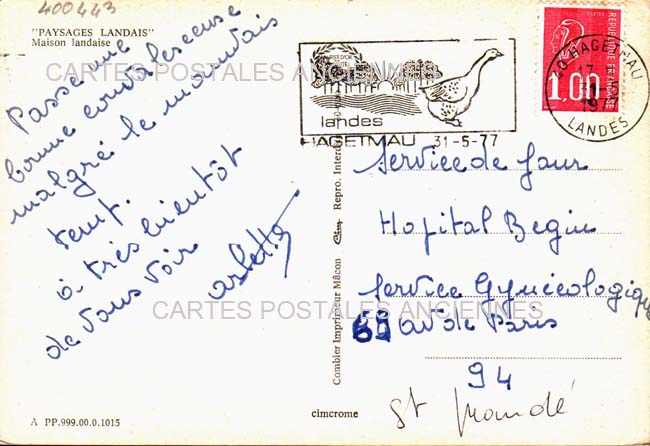 400443
"PAYSAGES LANDAIS"
Maison landaise
Passe une
bonne convalescence
malgré le mauvais
temp.
à très bientôt
de vous voir
arlette
CARTES POSTALES ANCIENNES
landes
HAGETMAU 31-5-77
POSTES
REPUBLIQUE FRANCAISE
1,00
40 HAGETMAU
LANDES
Service de Jour
Hopital Begin
Service Gynécologique
69 av de Paris
94
St Mandé
CARTES POSTALES ANCIENNES
Combier Imprimeur Mâcon Cim Repro.
A PP.999.00.0.1015
cimcrome